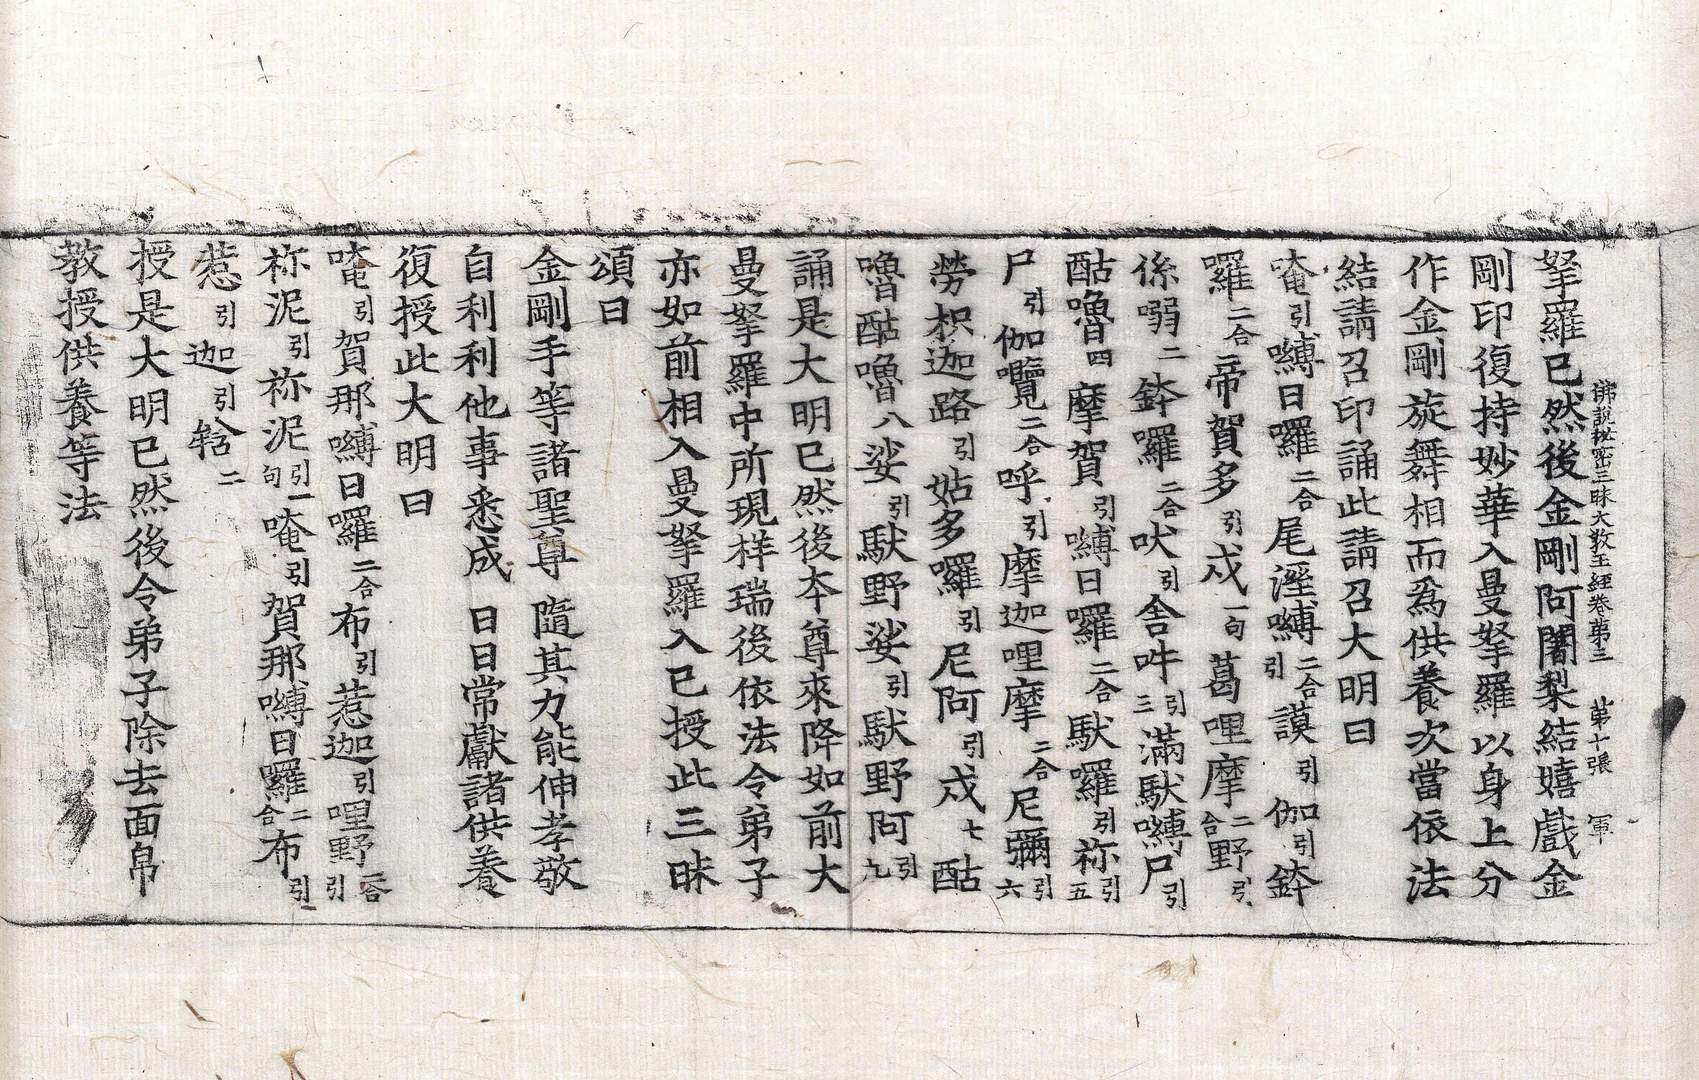 佛說秘密三昧大敎王經卷第三　第十張　軍
拏羅已然後金剛阿闍梨結嬉戲金
剛印復持妙華入曼拏羅以身上分
作金剛旋舞相而爲供養次當依法
結請召印誦此請召大明曰
唵引嚩日囉二合尾溼嚩二合引謨引伽引鉢
囉二合帝賀多引戍一句葛哩摩二合野引
係嗢二鉢囉二合吠引舍吽引三滿馱嚩尸引
酤嚕四摩賀引嚩日囉二合馱囉引祢引五
尸引伽囕二合呼引摩迦哩摩二合尼彌引六
勞枳迦路引姑多囉引尼阿引戍七酤
嚕酤嚕八娑引馱野娑引馱野阿引九
誦是大明已然後本尊來降如前大
曼拏羅中所現祥瑞後依法令弟子
亦如前相入曼拏羅入已授此三昧
頌曰
金剛手等諸聖尊　隨其力能伸孝敬
自利利他事悉成　日日常獻諸供養
復授此大明曰
唵引賀那嚩日囉二合布引惹迦引哩野二合引
祢泥引祢泥引一句唵引賀那嚩日囉二合布引
惹引迦引㸃二
授是大明已然後令弟子除去面帛
敎授供養等法